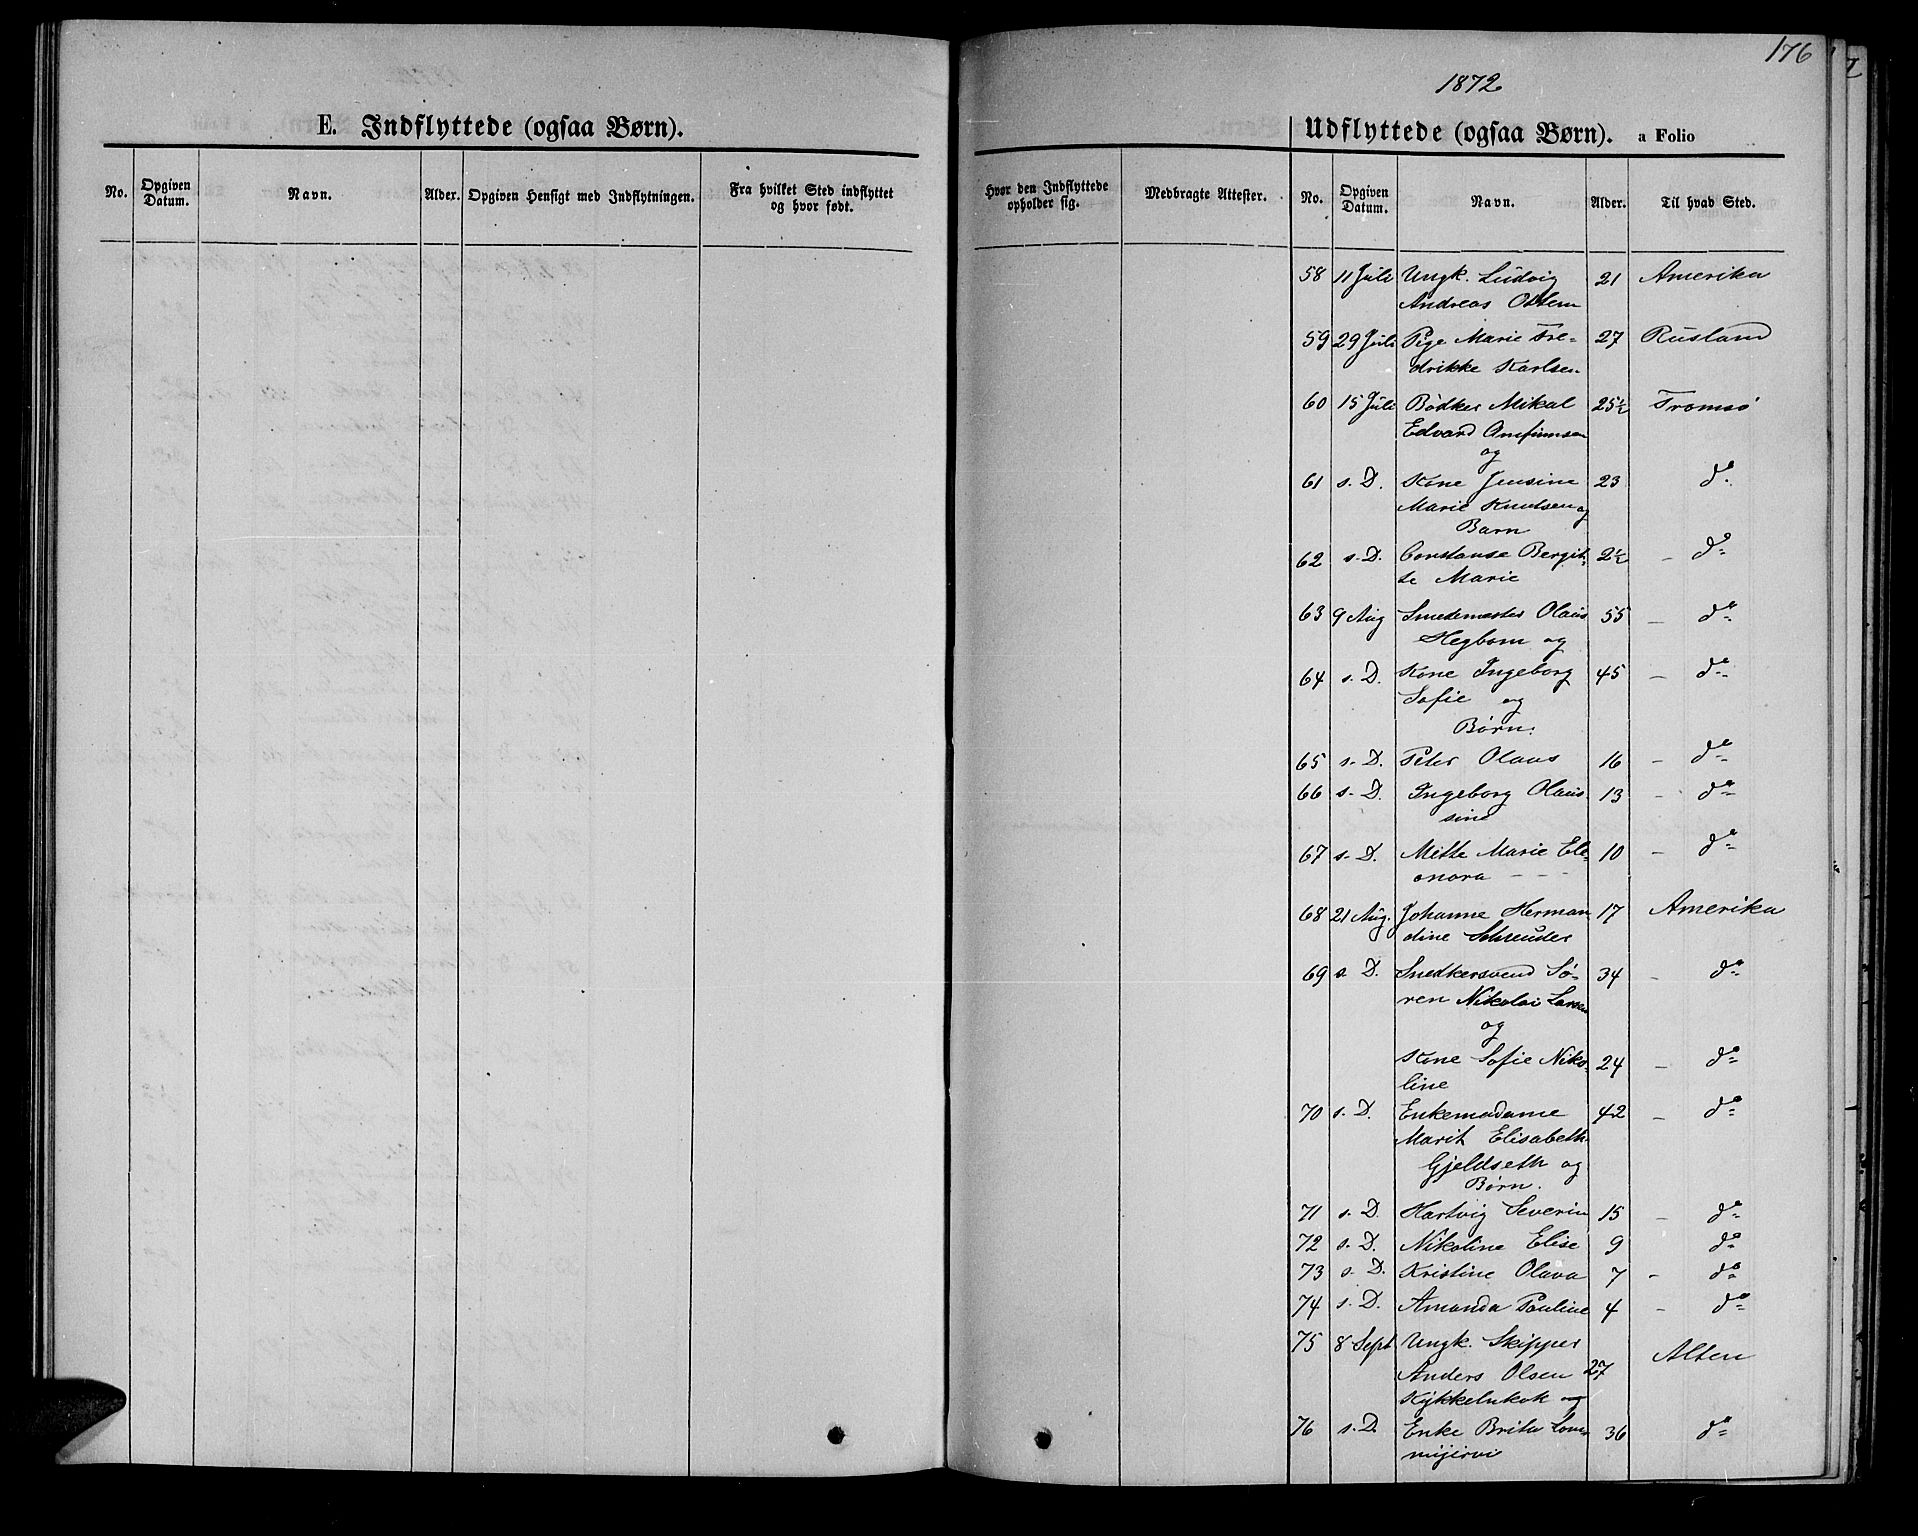 176
1872
E. Indflyttede (ogsaa Børn).
Udflyttede (ogsaa Børn). a Folio
No. Opgiven Datum. Navn. Alder. Opgiven Hensigt med Indflytningen. Fra hvilket Sted indflyttet og hvor født.
Hvor den Indflyttede opholder sig. Medbragte Attester. No. Opgiven Datum. Navn. Alder. Til hvad Sted.
58 11 Juli Ungk. Ludvig 21 Amerika
Andreas Ottem
59 29 Juli Pige Marie Fre- 27 Rusland
drikke Karlsen
60 15 Juli Bødker Mikal 25½ Tromsø
Edvard Amfinnsen
og
61 s. D. Kone Jensine 23 do
Marie Knutsen og
Barn
62 s. D. Constanse Bergit- 2½ - do
te Marie
63 9 Aug Smedemester Olaus 55 - do
Hegbom og
64 s. D. Kone Ingeborg 45 - do
Sofie og
Børn.
65 s. D. Peter Olaus 16 - do
66 s. D. Ingeborg Olaus- 13 - do
sine
67 s. D. Mette Marie Ele- 10 - do
onora
68 21 Aug. Johanne Herman 17 Amerika
dine Schreuder
69 s. D. Snedkersvend Sø- 34 - do
ren Nikolai Larsen
og
Kone Sofie Niko- 24 - do
line
70 s. D. Enkemadame 42 - do
Marit Elisabeth
Gjeldseth og
Børn.
71 s. D. Hartvig Severin 15 - do
72 s. D. Nikoline Elise 9 do
73 s. D. Kristine Olava 7 - do
74 s. D. Amanda Pauline 4 - do
75 8 Sept Ungk. Skipper
Anders Olsen 27 Alten
og
76 s. D. Enke Brita 36 do